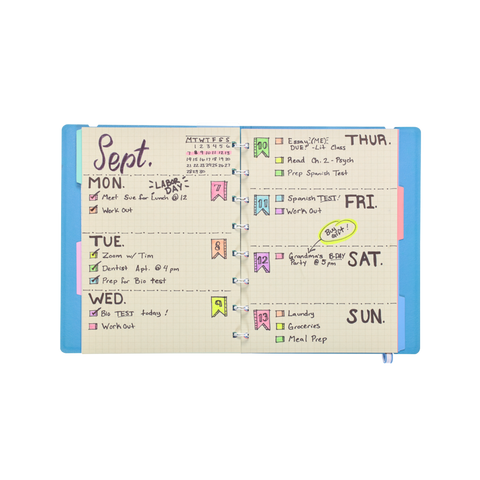 Sept.
M T W T F S S
1 2 3 4 5 6
7 8 9 10 11 12 13
14 15 16 17 18 19 20
21 22 23 24 25 26 27
28 29 30
MON.
LABOR DAY
7
Meet Sue for Lunch @ 12
Work Out
TUE.
8
Zoom w/ Tim
Dentist Apt. @ 4pm
Prep for Bio test
WED.
9
Bio TEST today!
Work Out
THUR.
10
Essay (ME)
DUE! - Lit Class
Read Ch. 2 - Psych
Prep Spanish Test
FRI.
11
Spanish TEST!
Work Out
Buy gift!
SAT.
12
Grandma's B-DAY
Party @ 5pm
SUN.
13
Laundry
Groceries
Meal Prep